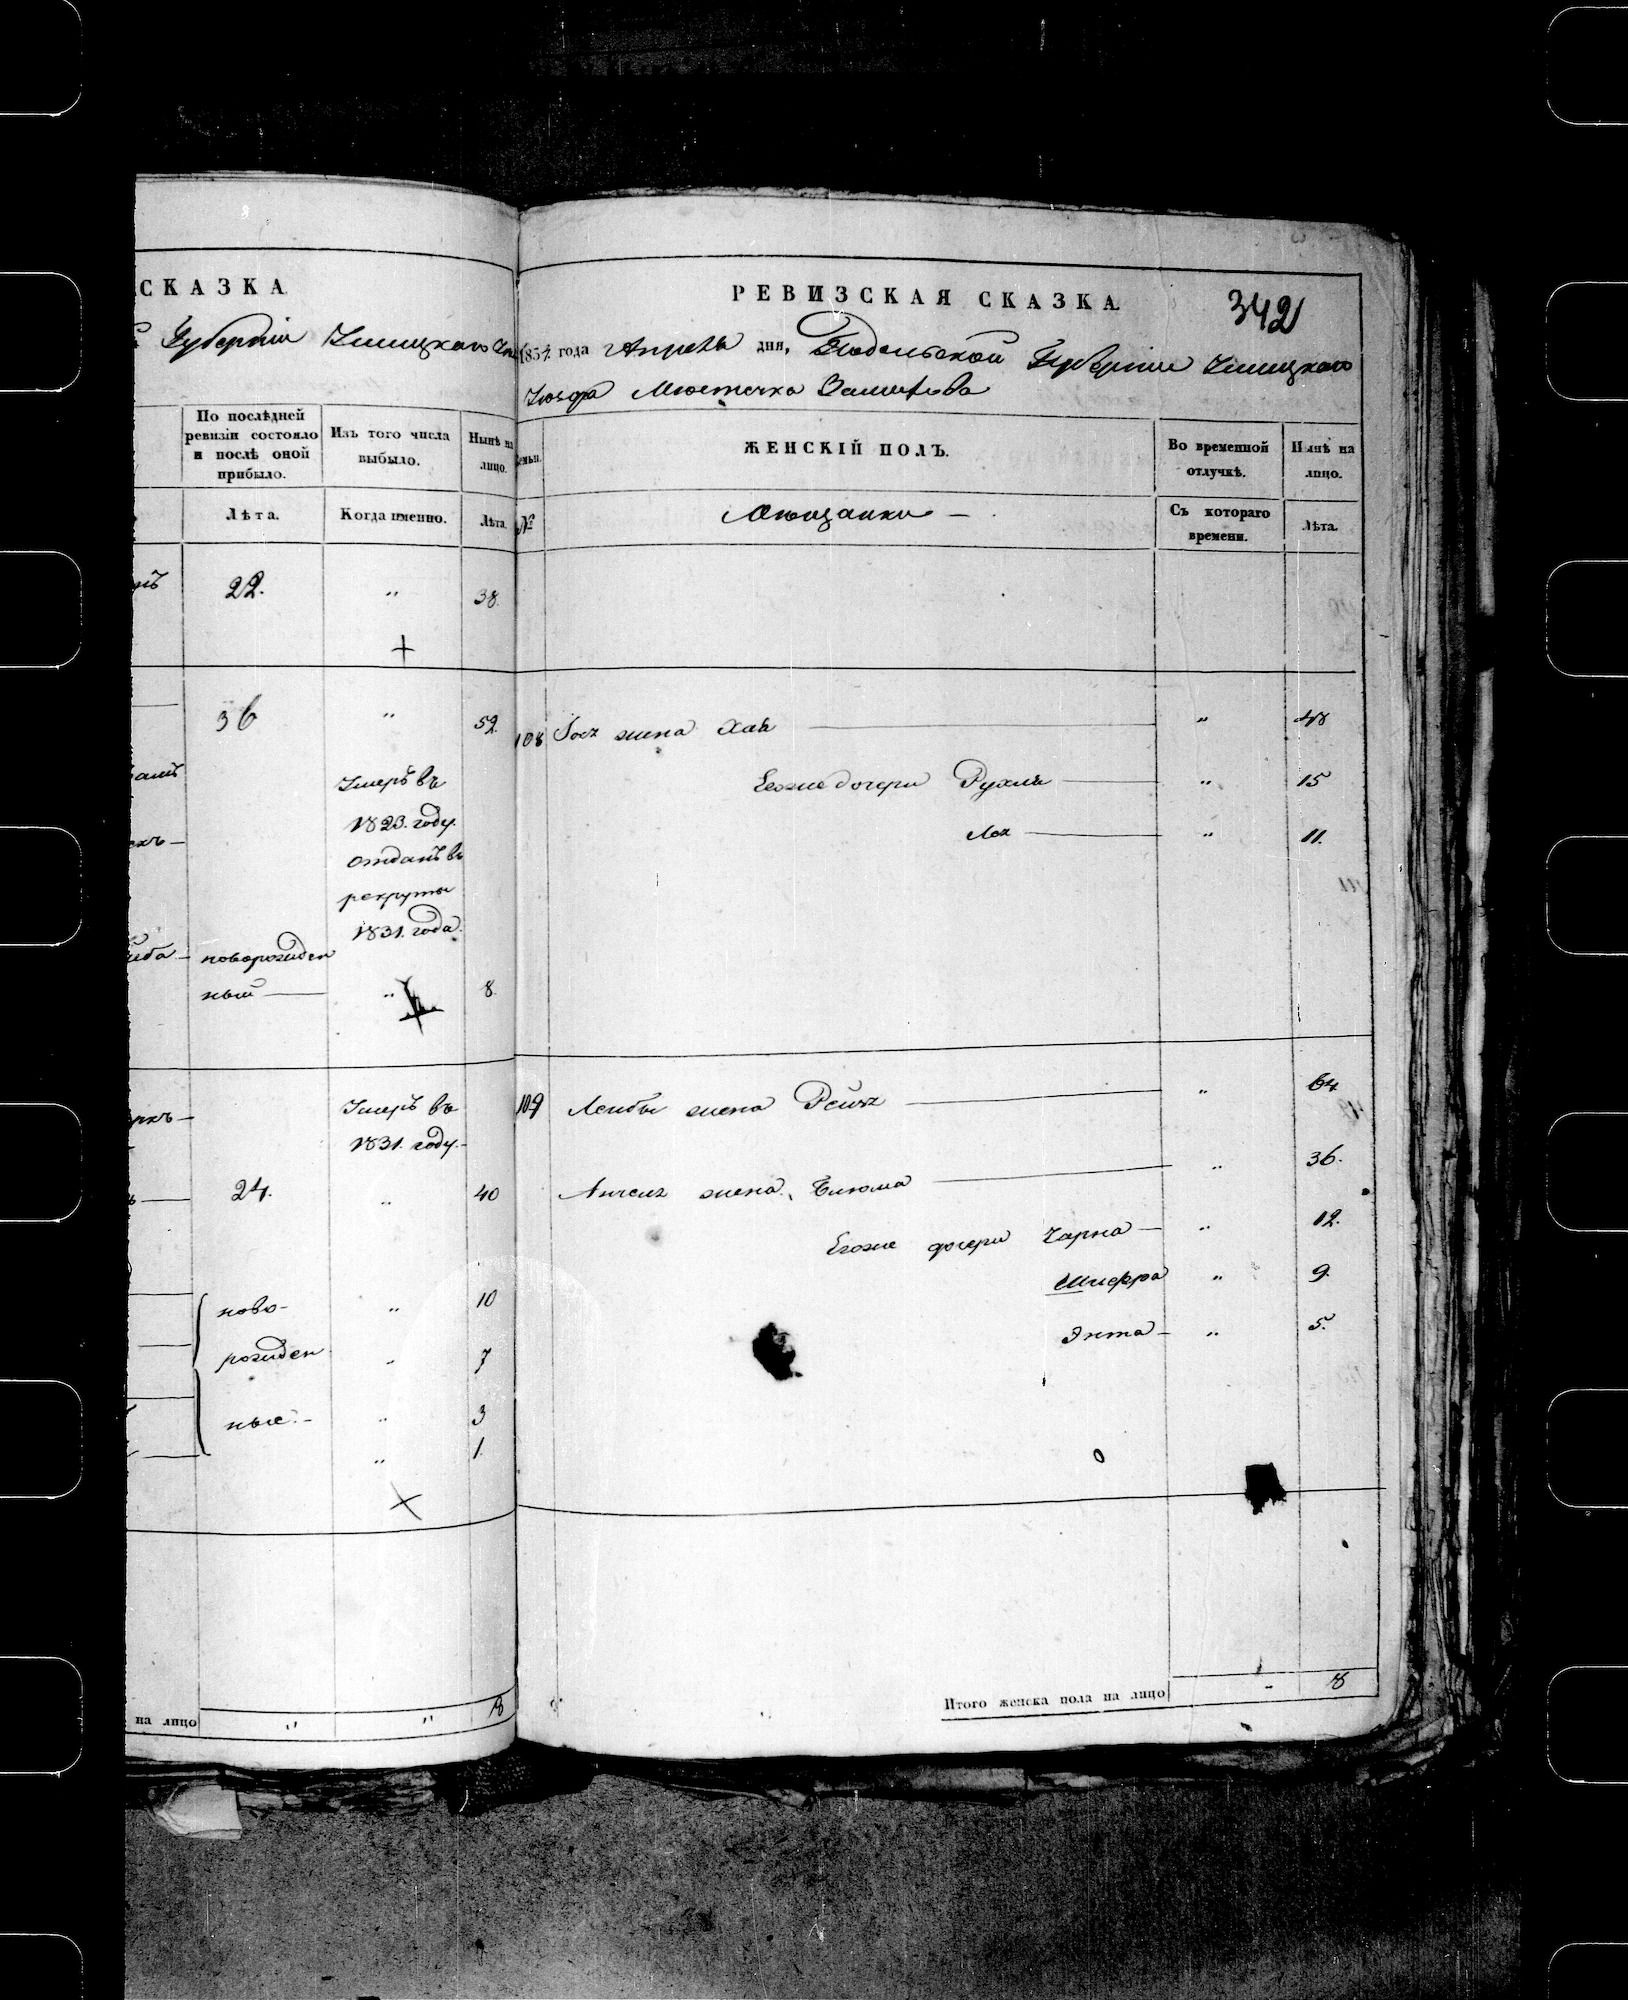 СКАЗКА
Губерніи Ушицкаго
По послѣдней
ревизіи состояло
и послѣ оной
прибыло.
Изъ того числа
выбыло.
Нынѣ на
лицо.
Лѣта.
Когда именно.
Лѣта.
22.
"
38.
+
36
"
52.
Умеръ въ
1823. году.
отданъ въ
рекруты
1831. года.
новорожден
ный
"
8.
Умеръ въ
1831. году.
24.
"
40
ново-
"
10
рожден
"
7
ные.
"
3
"
1.
на лицо
"
"
8
РЕВИЗСКАЯ СКАЗКА
342
1834 года Апрѣля дня, Подольской Губерніи Ушицкаго
Уѣзда Мѣстечка Замѣхова
семьи.
ЖЕНСКІЙ ПОЛЪ.
Во временной
отлучкѣ.
Нынѣ на
лицо.
№
Мѣщанки
Съ котораго
времени.
Лѣта.
108 жена Хая " 48
Егоже дочери Рухля " 15
Лея " 11.
109 Лейбы жена Рейзя " 64
Анчеля жена, Блюма " 36.
Егоже дочери Чарна " 12.
Шифра " 9.
Энта " 5.
Итого женска пола на лицо " 8